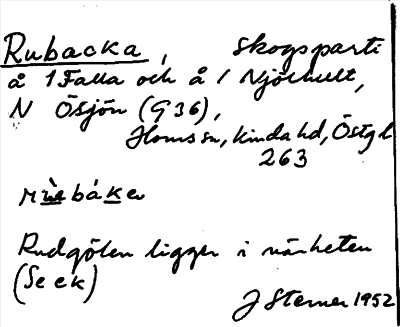 Rubacka, skogsparti
å 1 Falla och å 1 Njöchult,
N Ösjön (G 36),
Horns sn, Kinda hd, Östgl
263
bákev
Rudgölen ligger i närheten
(Se ek)
J Sterner 1952